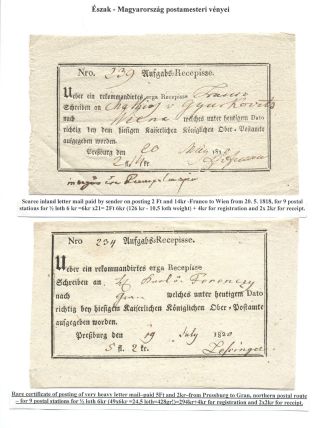 Észak - Magyarország postamesteri vényei
Nro. 239 Aufgabs-Recepisse.
Ueber ein rekommandirtes erga Recepisse Franco
Schreiben an v Gyurkovits
nach Wien welches unter heutigem Dato
richtig bey dem hiesigen Kaiserlichen Königlichen Ober-Postamte
aufgegeben worden.
Preßburg den 20 1818
2 fl. kr.
Scarce inland letter mail paid by sender on posting 2 Ft and 14kr -Franco to Wien from 20. 5. 1818, for 9 postal
stations for ½ loth 6 kr =6kr x21= 2Ft 6kr (126 kr - 10,5 loth weight) + 4kr for registration and 2x 2kr for receipt.
Nro. 234 Aufgabs-Recepisse.
Ueber ein rekommandirtes erga Recepisse
Schreiben an Ferenczy
nach Gran welches unter heutigem Dato
richtig bey hiesigem Kaiserlichen Königlichen Ober-Postamte
aufgegeben worden.
Preßburg den 19 July 1820
5 fl. 2 kr.
Rare certificate of posting of very heavy letter mail–paid 5Ft and 2kr-from Pressburg to Gran, northern postal route
– for 9 postal stations for ½ loth 6kr (49x6kr =24,5 loth=428gr!)=294kr+4kr for registration and 2x2kr for receipt.